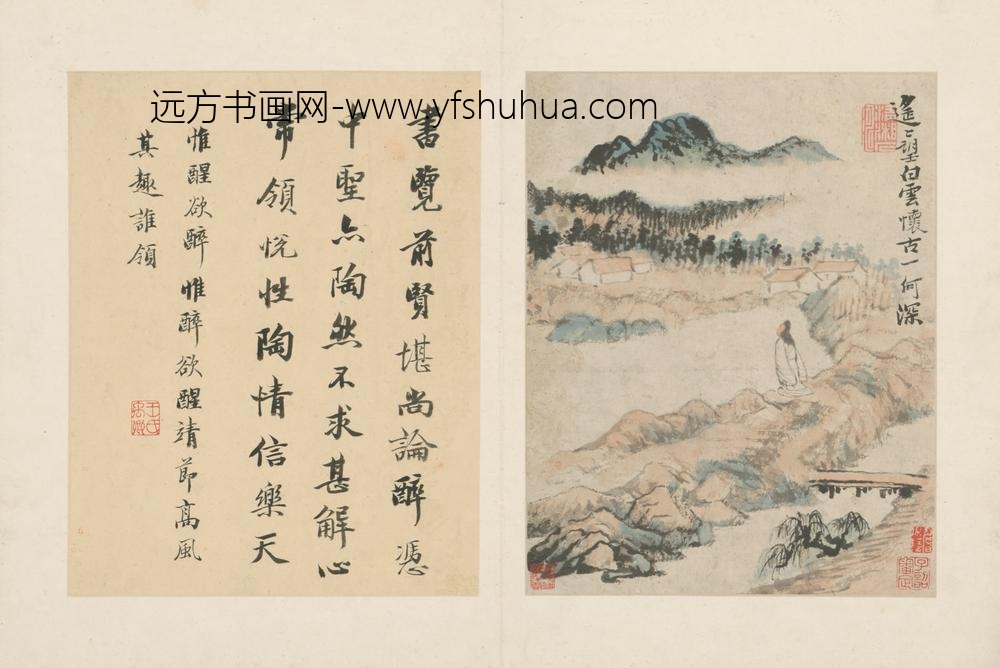 远方书画网-www.yfshuhua.com
遙〻望白雲懷古一何深
書覽前賢堪尚論醉憑
中聖亦陶然不求甚解心
常領悅性陶情信樂天
惟醒欲醉惟醉欲醒靖節高風
其趣誰領